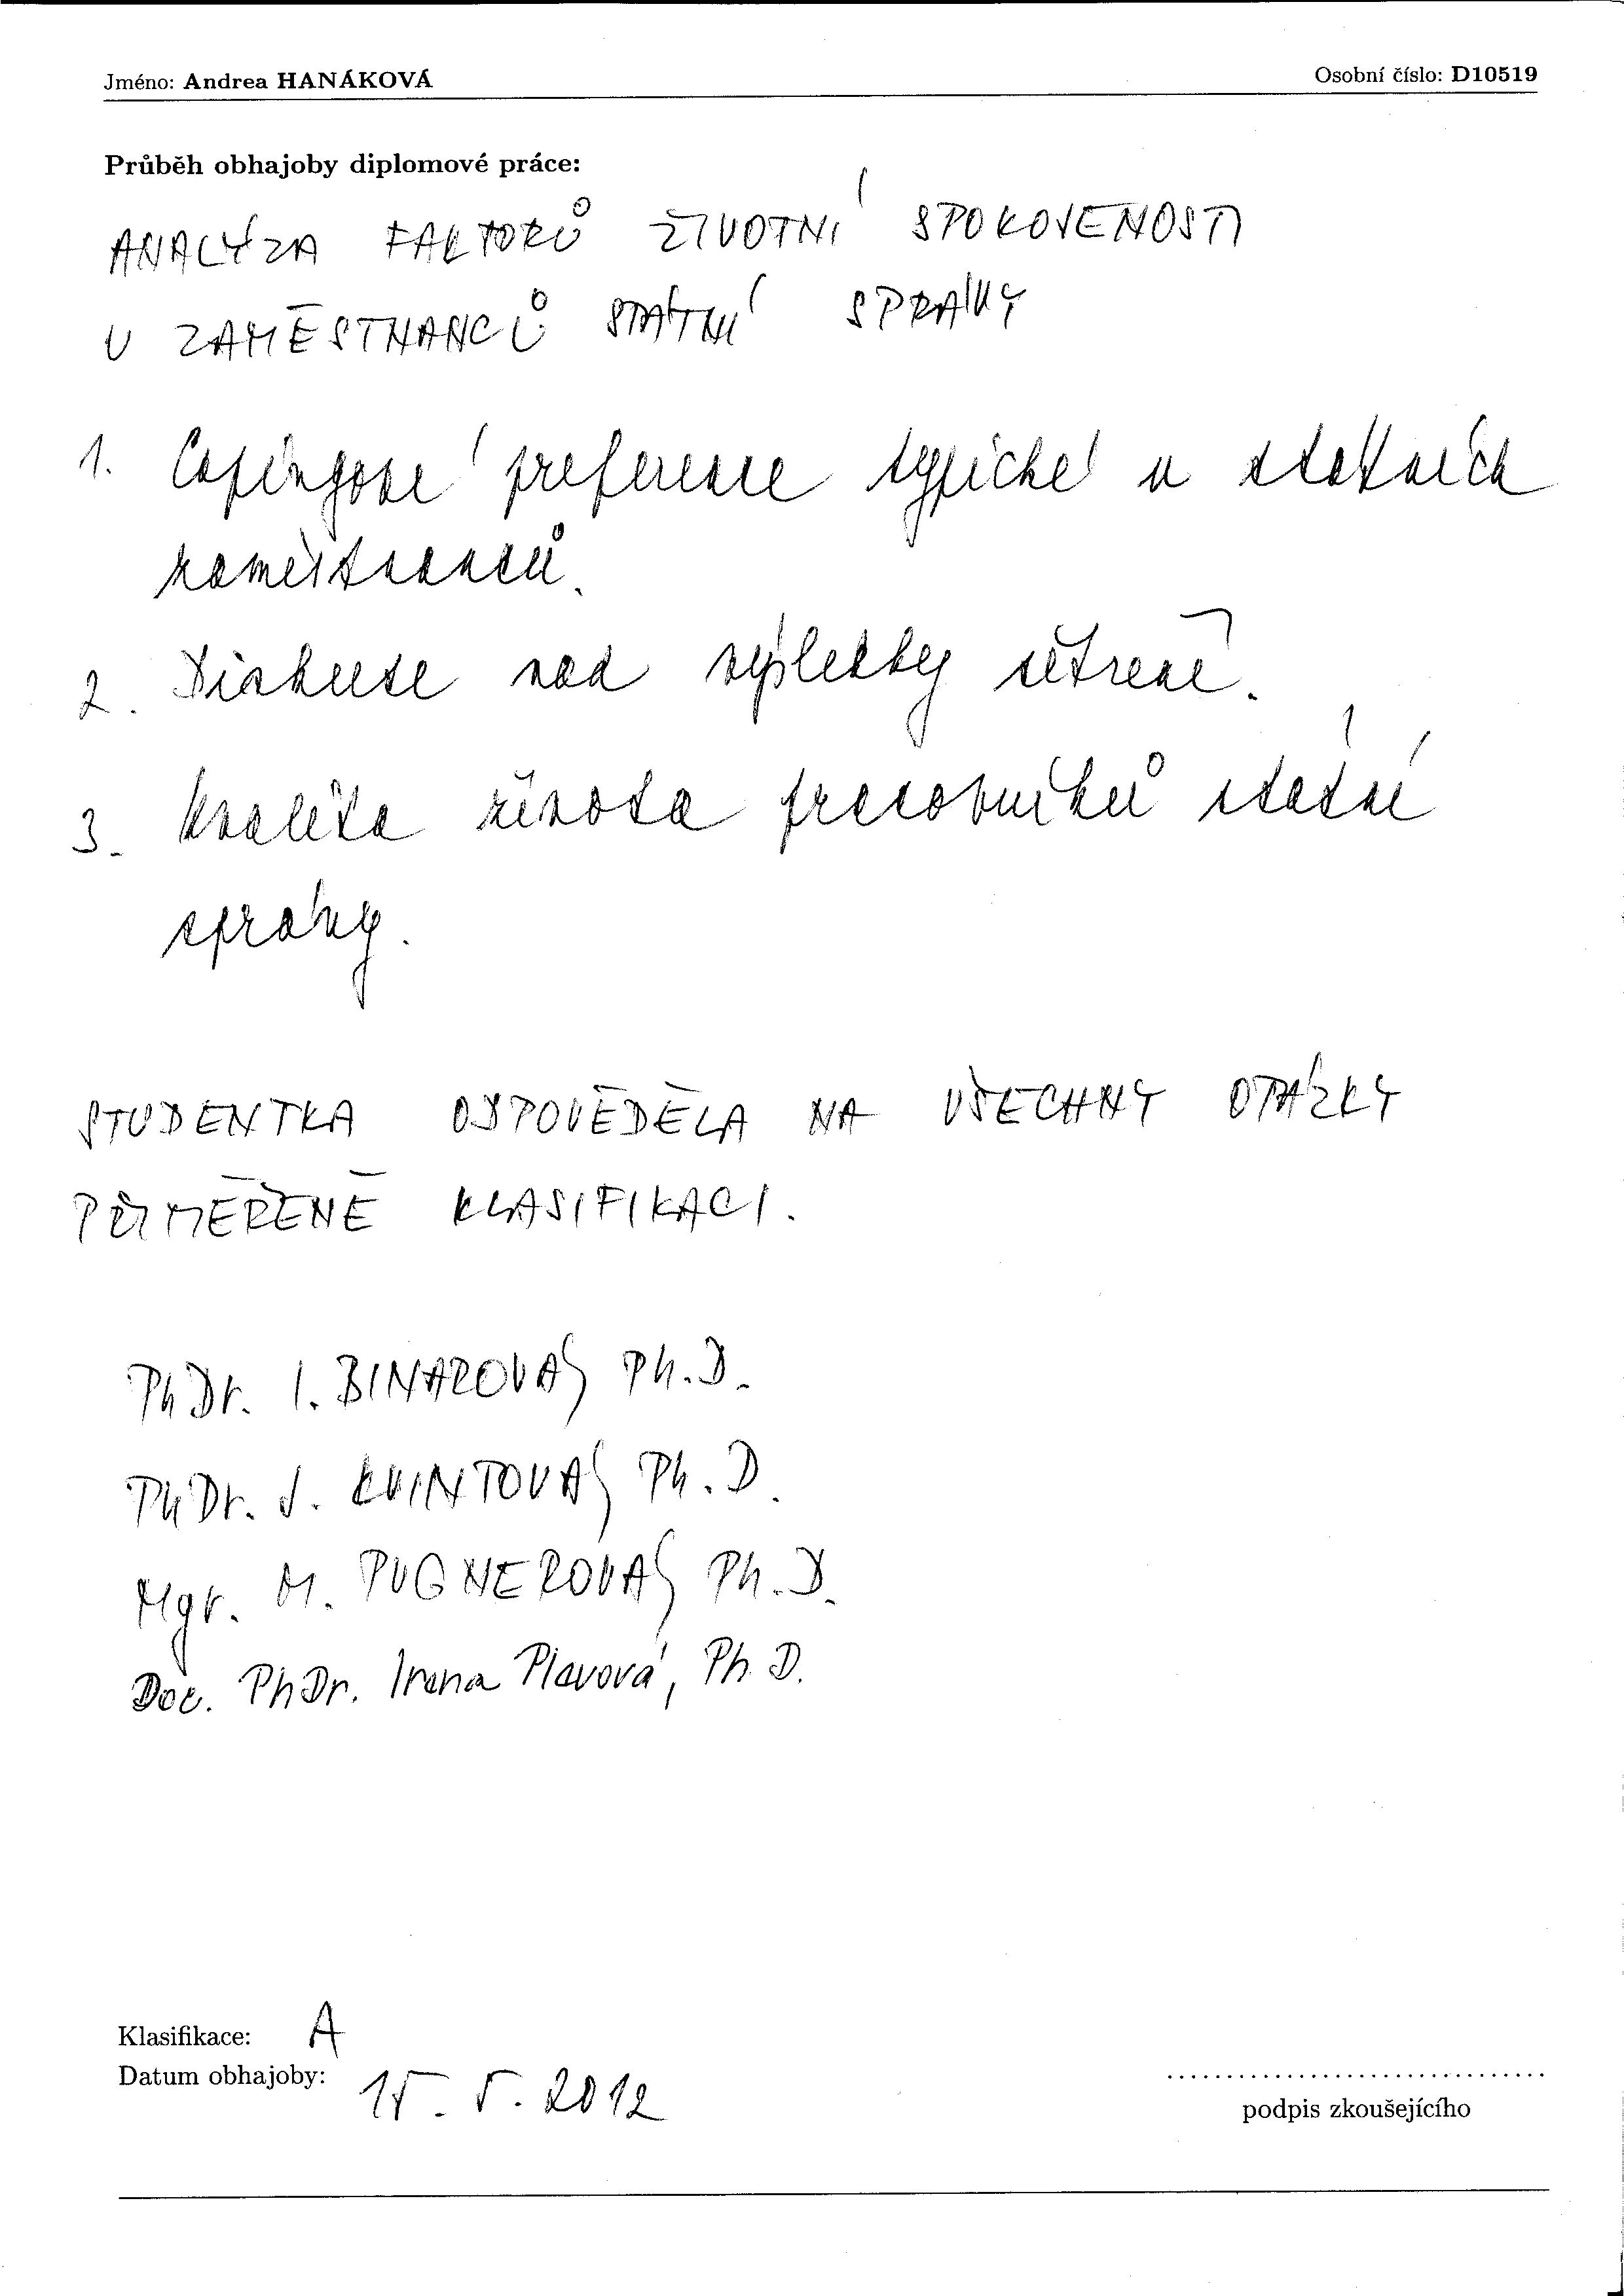 Jméno: Andrea HANÁKOVÁ Osobní číslo: D10519
Průběh obhajoby diplomové práce:
ANALÝZA FAKTORŮ ŽIVOTNÍ SPOKOJENOSTI
U ZAMĚSTNANCŮ STÁTNÍ SPRÁVY
1. Copingové preference typické u státních
zaměstnanců.
2. Diskuse nad výsledky šetření.
3. Kvalita života pracovníků státní
správy.
STUDENTKA ODPOVĚDĚLA NA VŠECHNY OTÁZKY
PŘIMĚŘENĚ KLASIFIKACI.
PhDr. I. BINAROVÁ, Ph.D.
PhDr. J. KVINTOVÁ, Ph.D.
Mgr. M. PUGNEROVÁ, Ph.D.
Doc. PhDr. Irena Plevová, Ph.D.
Klasifikace: A
Datum obhajoby: 15. 5. 2012
podpis zkoušejícího